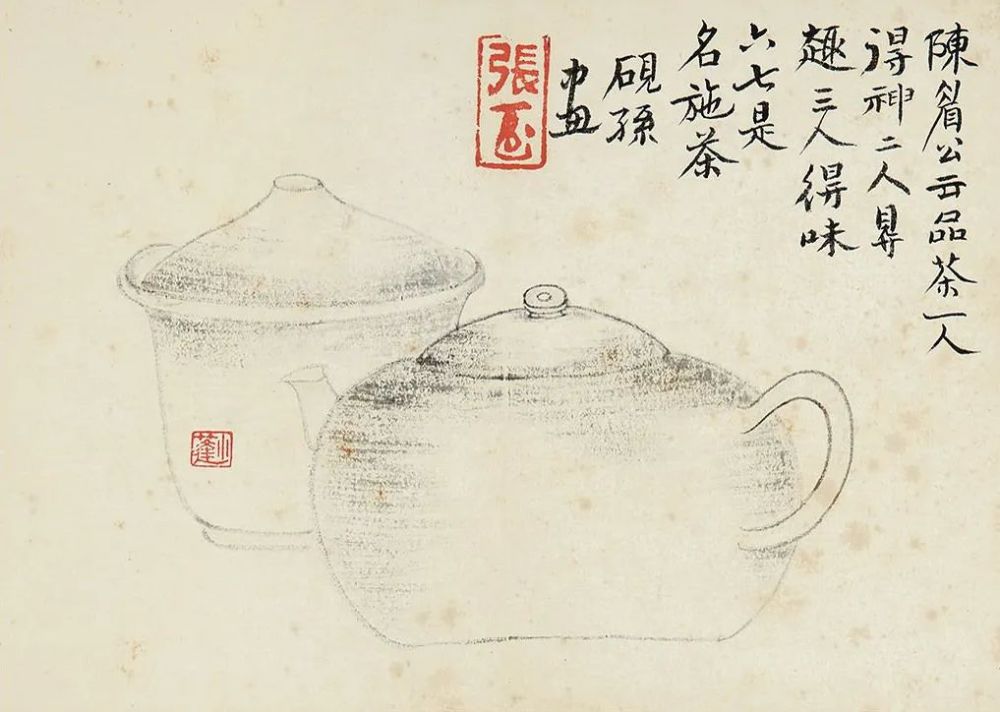 陳眉公云品茶一人
得神二人㝵
趣三人得味
六七是
名施茶
硯孫
張
小蓬